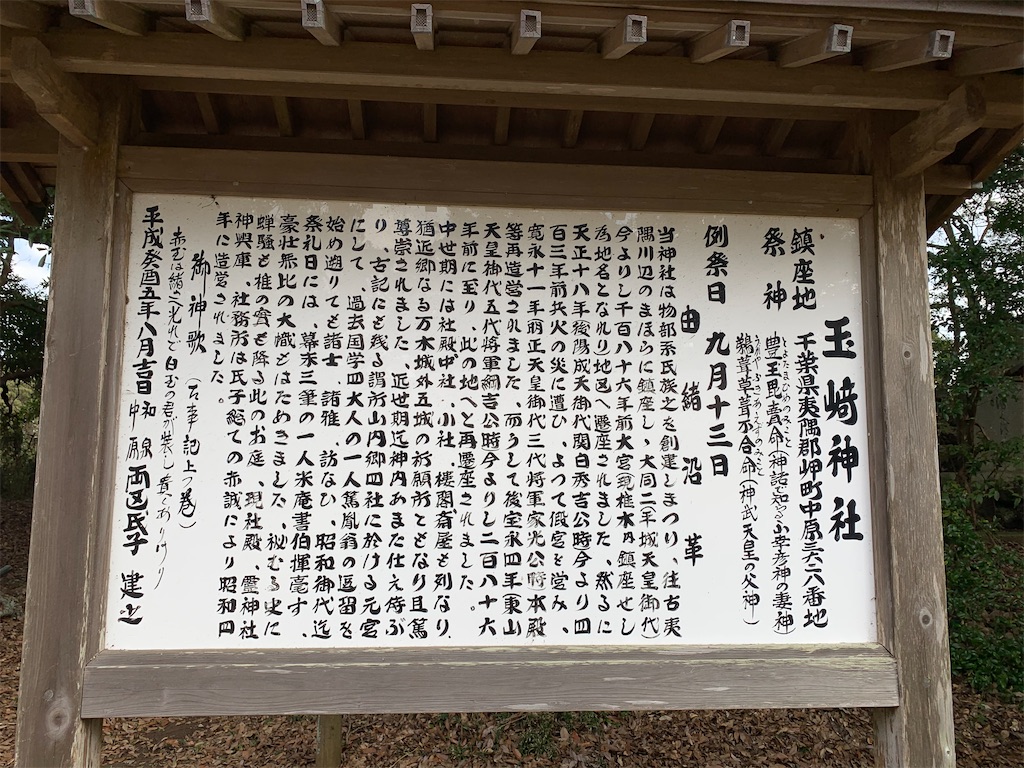 玉﨑神社
鎮座地 千葉県夷隅郡岬町中原三六六番地
祭神 豊玉毘賣命(神話で知る山幸彦神の妻神)
とよたまひめのみこと
鵜葺草葺不合命(神武天皇の父神)
うがやふきあえずのみこと
例祭日 九月十三日
由緒沿革
当神社は物部系氏族之を創建しまつり、往古夷
隅川辺のまほらに鎮座し、大同二年(平城天皇御代)
今よりし千百八十六年前大宮冠椎木内鎮座せし
為地名となれり地区へ遷座されました、然るに
天正十八年後陽成天皇御代関白秀吉公時今より四
百三年前兵火の災に遭ひ、よって假宮を営み、
寛永十一年明正天皇御代三代将軍家光公時)本殿
等再造営されました、而うして後宝永四年(東山
天皇御代五代将軍綱吉公時)今よりし二百八十六
年前に至り、此の地へと再遷座されました。
中世期には社殿中社、小社、楼閣斎屋も列なり
猶近郷なる万木城外五城の祈願所ともなり且篤
尊崇されました 近世期迄神内あまた仕え侍ぶ
り、古記にも残る謂所山内郷四社に於ける元宮
にして、過去国学四大人の一人篤胤翁の逗留を
始め遡りても諸士、諸雅、訪なひ、昭和御代迄
祭礼日には、幕末三筆の一人米庵書伯揮毫す、
豪壮無比の大幟もはためきました、秘むる史に
蝉騒も椎の實も降る此のお庭、現社殿、霊神社
神輿庫、社務所は氏子総ての赤誠により昭和四
年に造営されました。
御神歌 (古事記上つ巻)
赤玉は緒さへ光れど白玉の君が装し貴くありけり
平成癸酉五年八月吉日 和泉 中原 両区氏子 建之